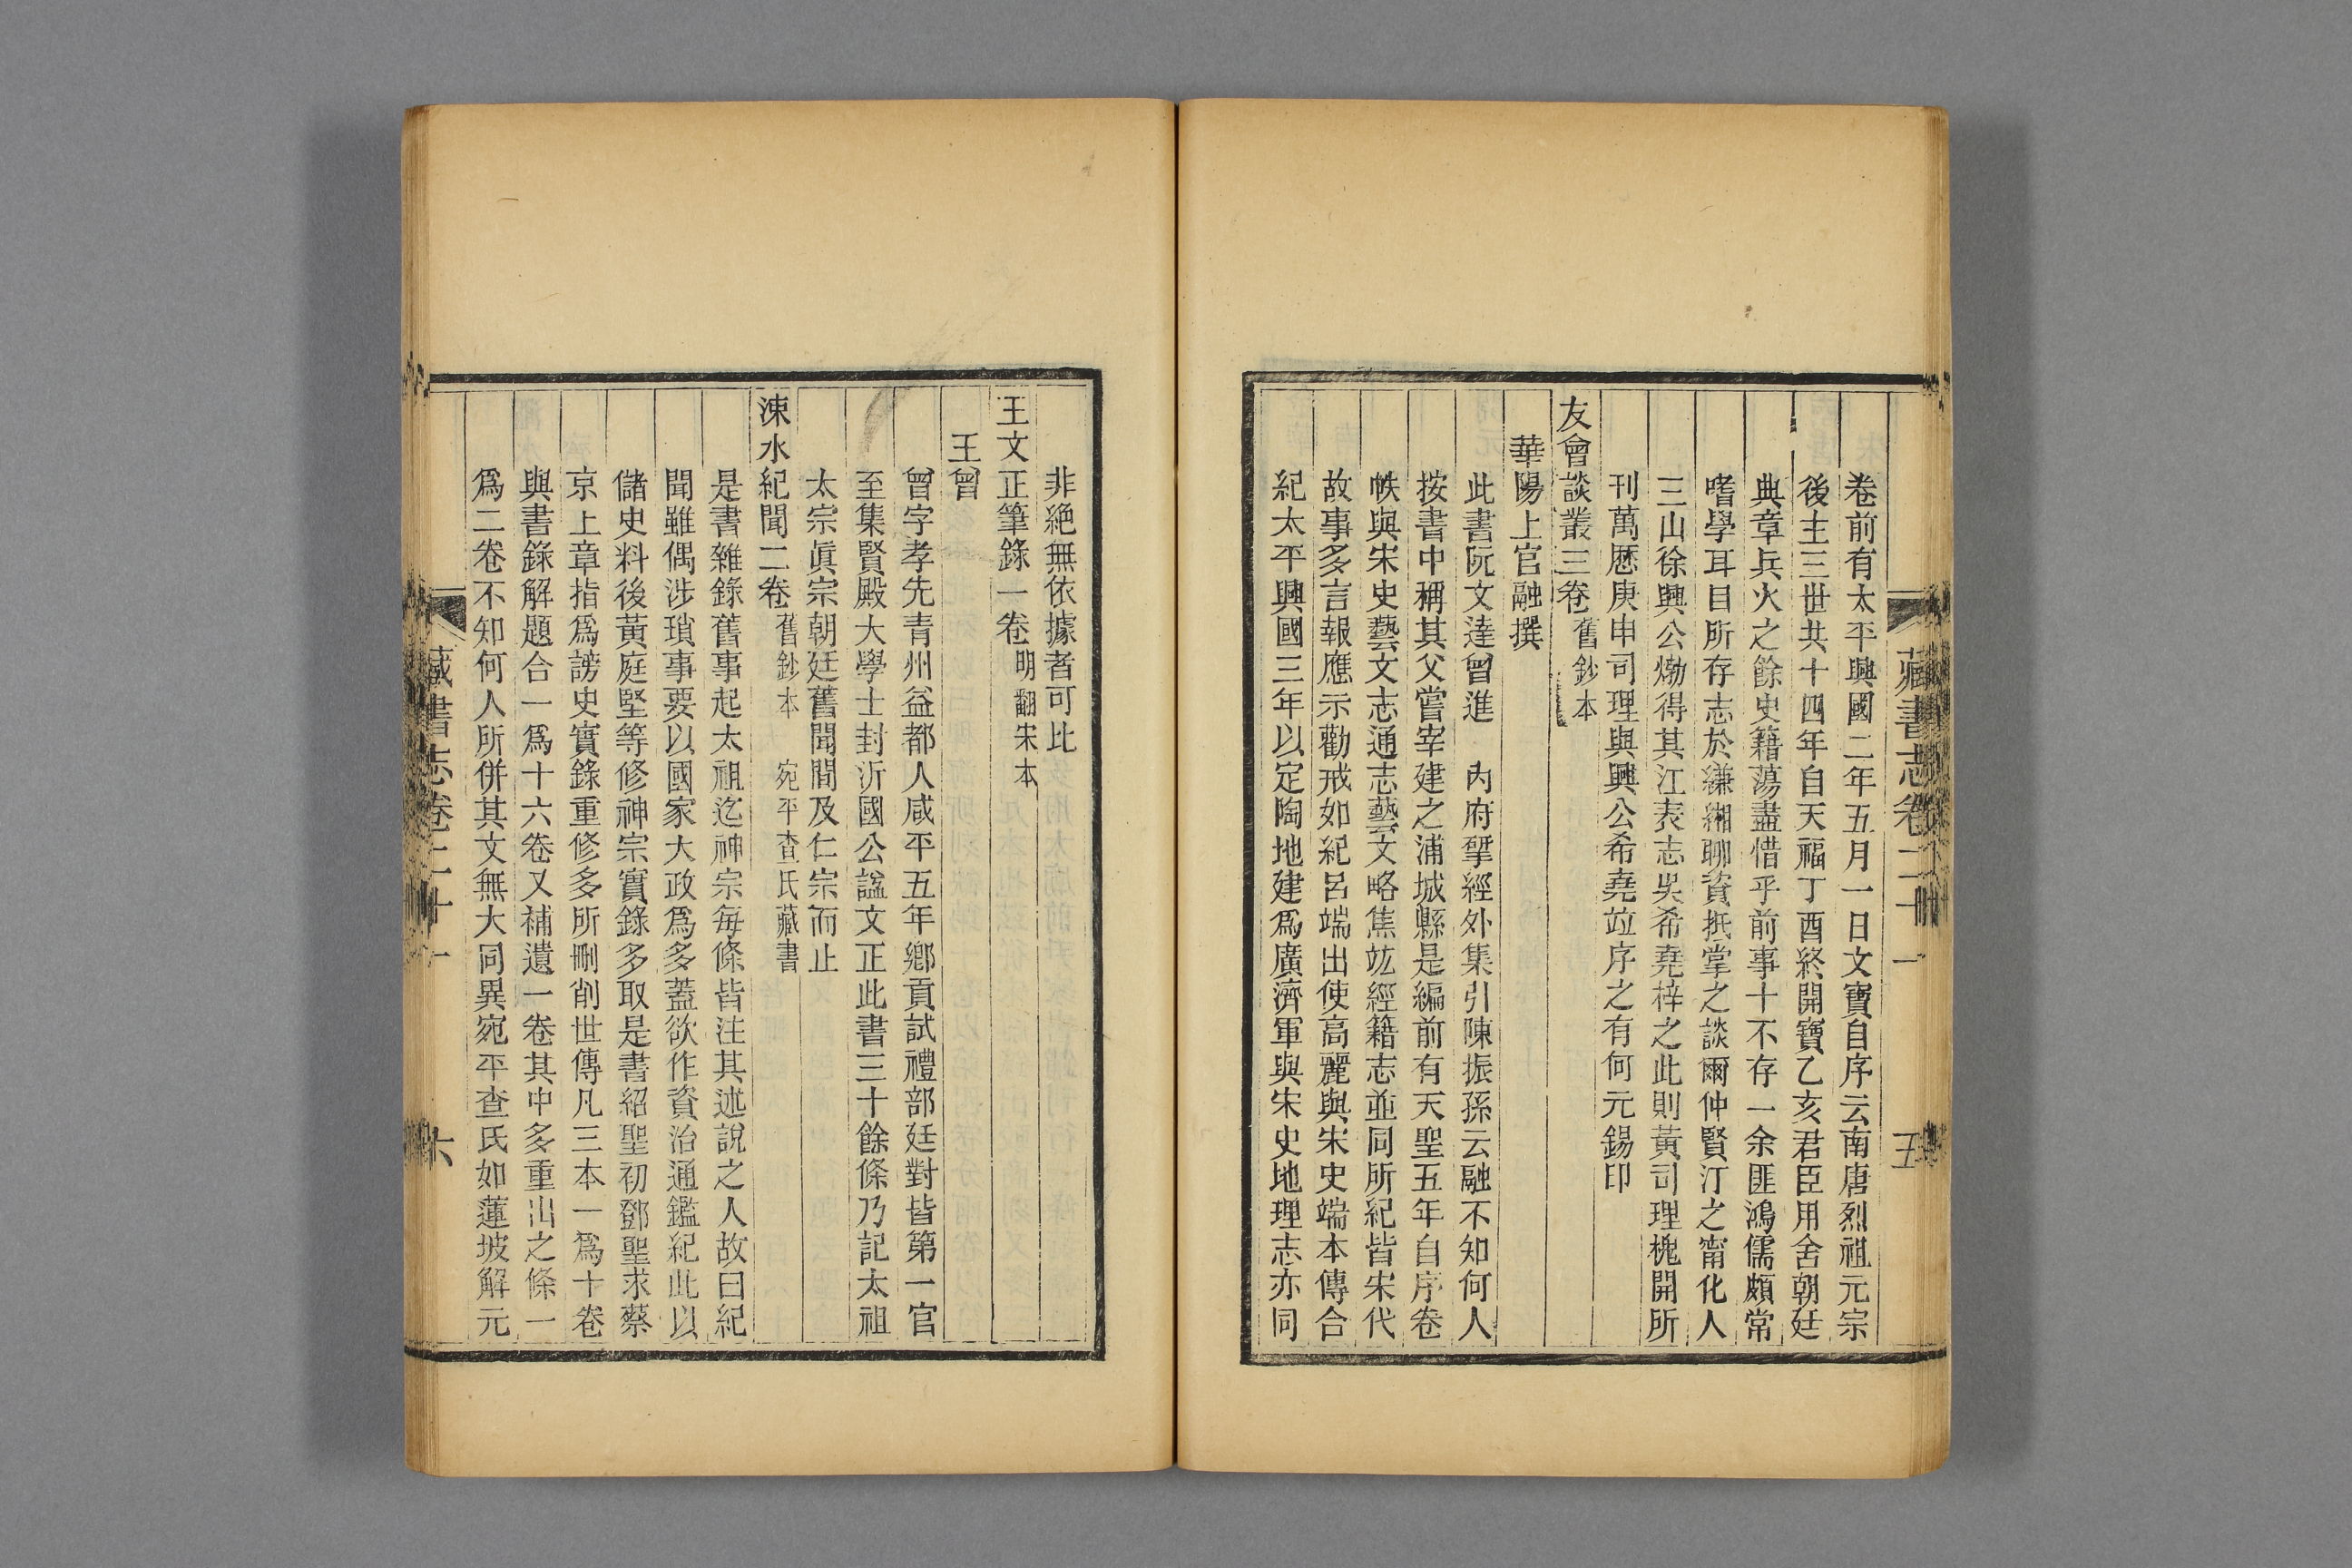 藏書志卷二十一
五
卷前有太平興國二年五月一日文寶自序云南唐烈祖元宗
後主三世共十四年自天福丁酉終開寶乙亥君臣用舍朝廷
典章兵火之餘史籍蕩盡惜乎前事十不存一余匪鴻儒頗常
嗜學耳目所存志於縑緗聊資抵掌之談爾仲賢汀之甯化人
三山徐興公𤊹得其江表志吳希堯梓之此則黃司理槐開所
刊萬歷庚申司理與興公希堯竝序之有何元錫印
友會談叢三卷 舊鈔本
華陽上官融撰
此書阮文達曾進 內府揅經外集引陳振孫云融不知何人
按書中稱其父嘗宰建之浦城縣是編前有天聖五年自序卷
帙與宋史藝文志通志藝文略焦竑經籍志並同所紀皆宋代
故事多言報應示勸戒如紀呂端出使高麗與宋史端本傳合
紀太平興國三年以定陶地建爲廣濟軍與宋史地理志亦同
非絕無依據者可比
王文正筆錄一卷 明翻宋本
王曾
曾字孝先青州益都人咸平五年鄉貢試禮部廷對皆第一官
至集賢殿大學士封沂國公諡文正此書三十餘條乃記太祖
太宗眞宗朝廷舊聞間及仁宗而止
涑水紀聞二卷 舊鈔本 宛平查氏藏書
是書雜錄舊事起太祖迄神宗每條皆注其述說之人故曰紀
聞雖偶涉瑣事要以國家大政爲多蓋欲作資治通鑑紀此以
儲史料後黃庭堅等修神宗實錄多取是書紹聖初鄧聖求蔡
京上章指爲謗史實錄重修多所刪削世傳凡三本一爲十卷
與書錄解題合一爲十六卷又補遺一卷其中多重出之條一
爲二卷不知何人所併其文無大同異宛平查氏如蓮坡解元
藏書志卷二十一
六